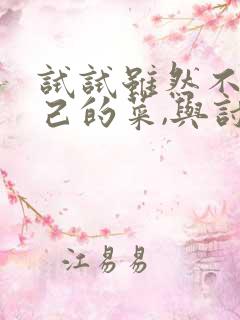 試試雖然不
己的菜,與討
江易易